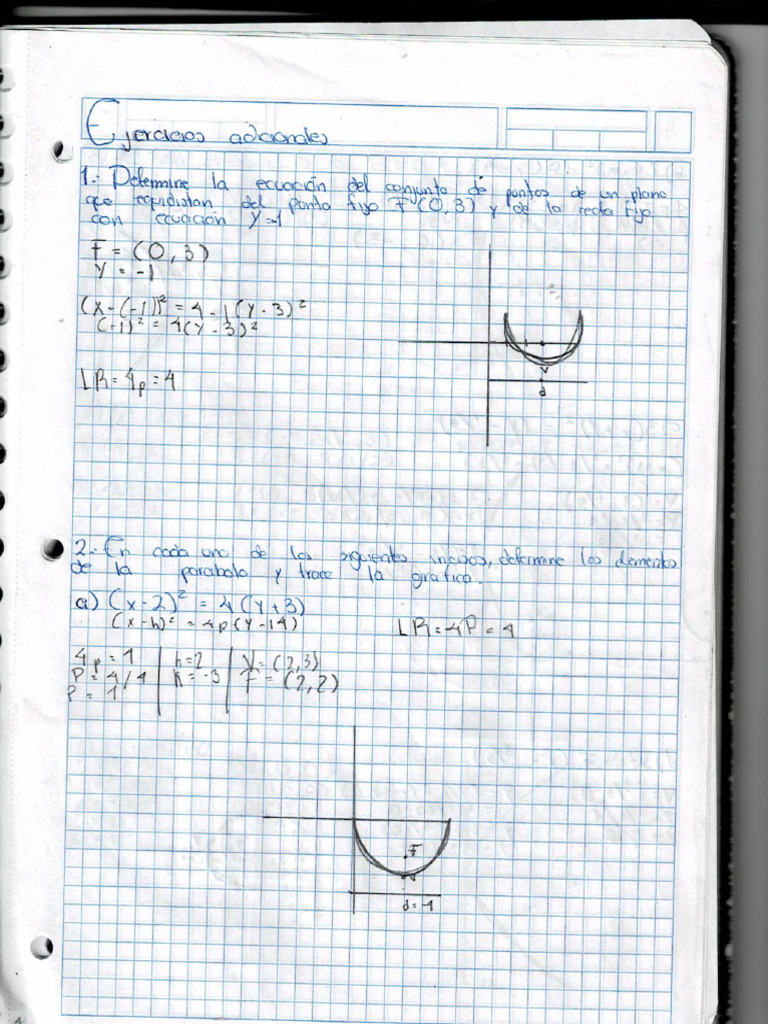 Ejercicios adicionales
1.- Determine la ecuación del conjunto de puntos de un plano
que equidistan del punto fijo F (0,3) y de la recta fija
con ecuación Y=-1
F = (0,3)
Y = -1
(x-(-1))² = 4 - 1(Y-3)²
(+1)² = 4(Y-3)²
LR = 4p = 4
V
d
2.- En cada uno de los siguientes incisos, determine los elementos
de la parabola y trace la grafica.
a) (x-2)² = 4(Y+3)
(x-h)² = 4p(Y-14)
LR = 4P = 4
4p = 1 | h=2 | V = (2,3)
P = 4/4 | k = -3 | F = (2,2)
P = 1
F
V
d = -1